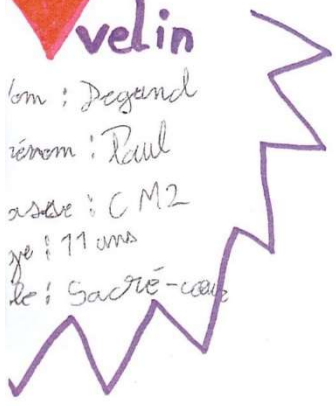 velin
om : Degand
rénom : Paul
asse : CM2
ge : 11 ans
le : Sacré-cœur